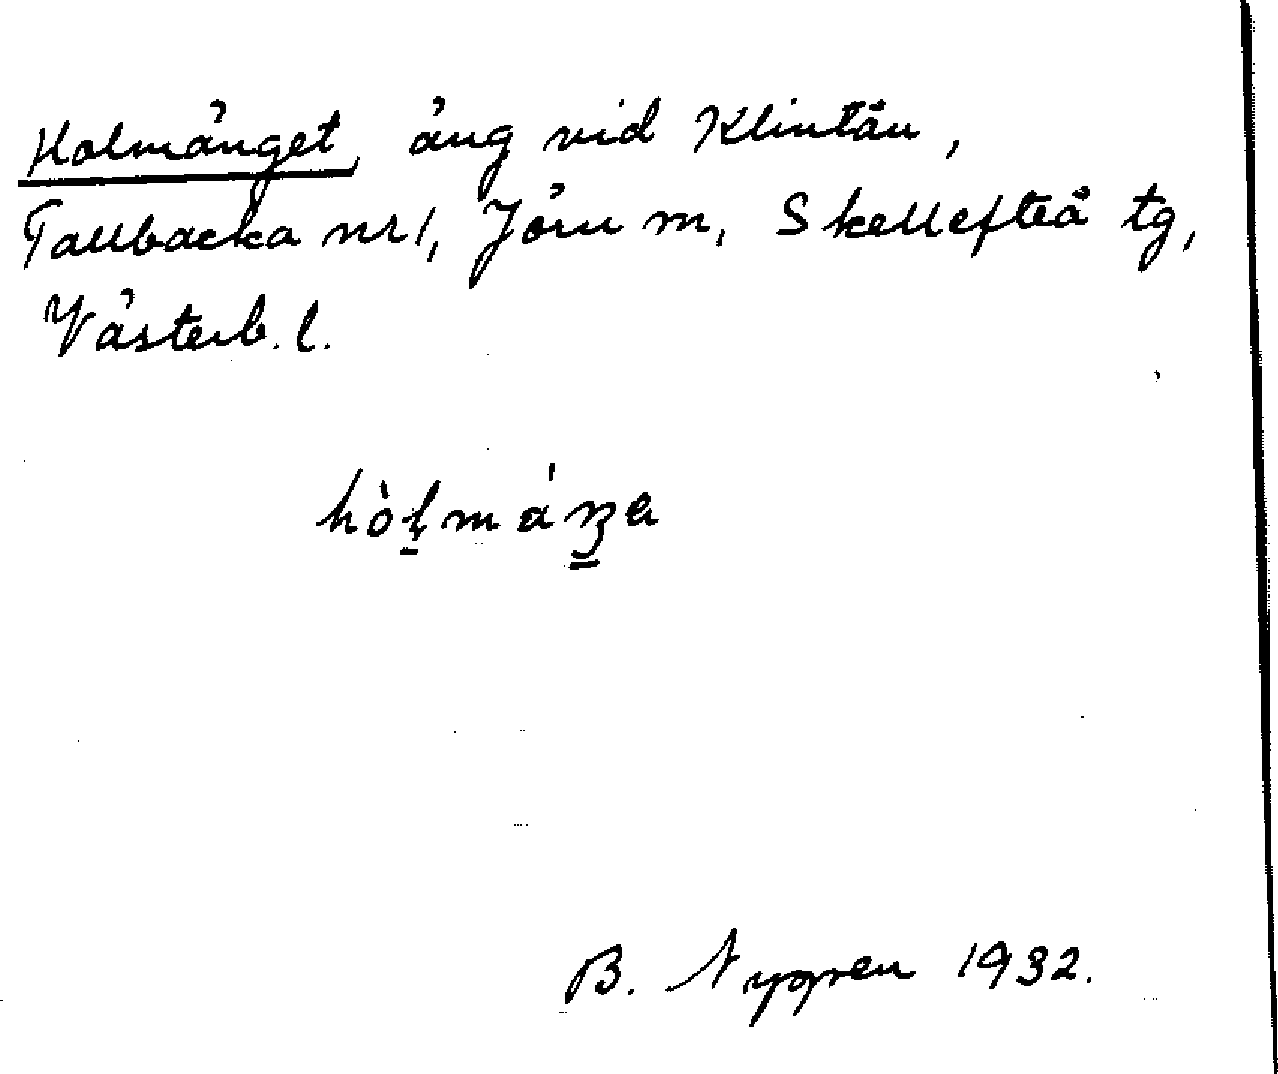 Holmänget, äng vid Klintån,
Tallbacka nr 1, Jörn m, Skellefteå tg,
Västerb. l.
B. Nygren 1932.